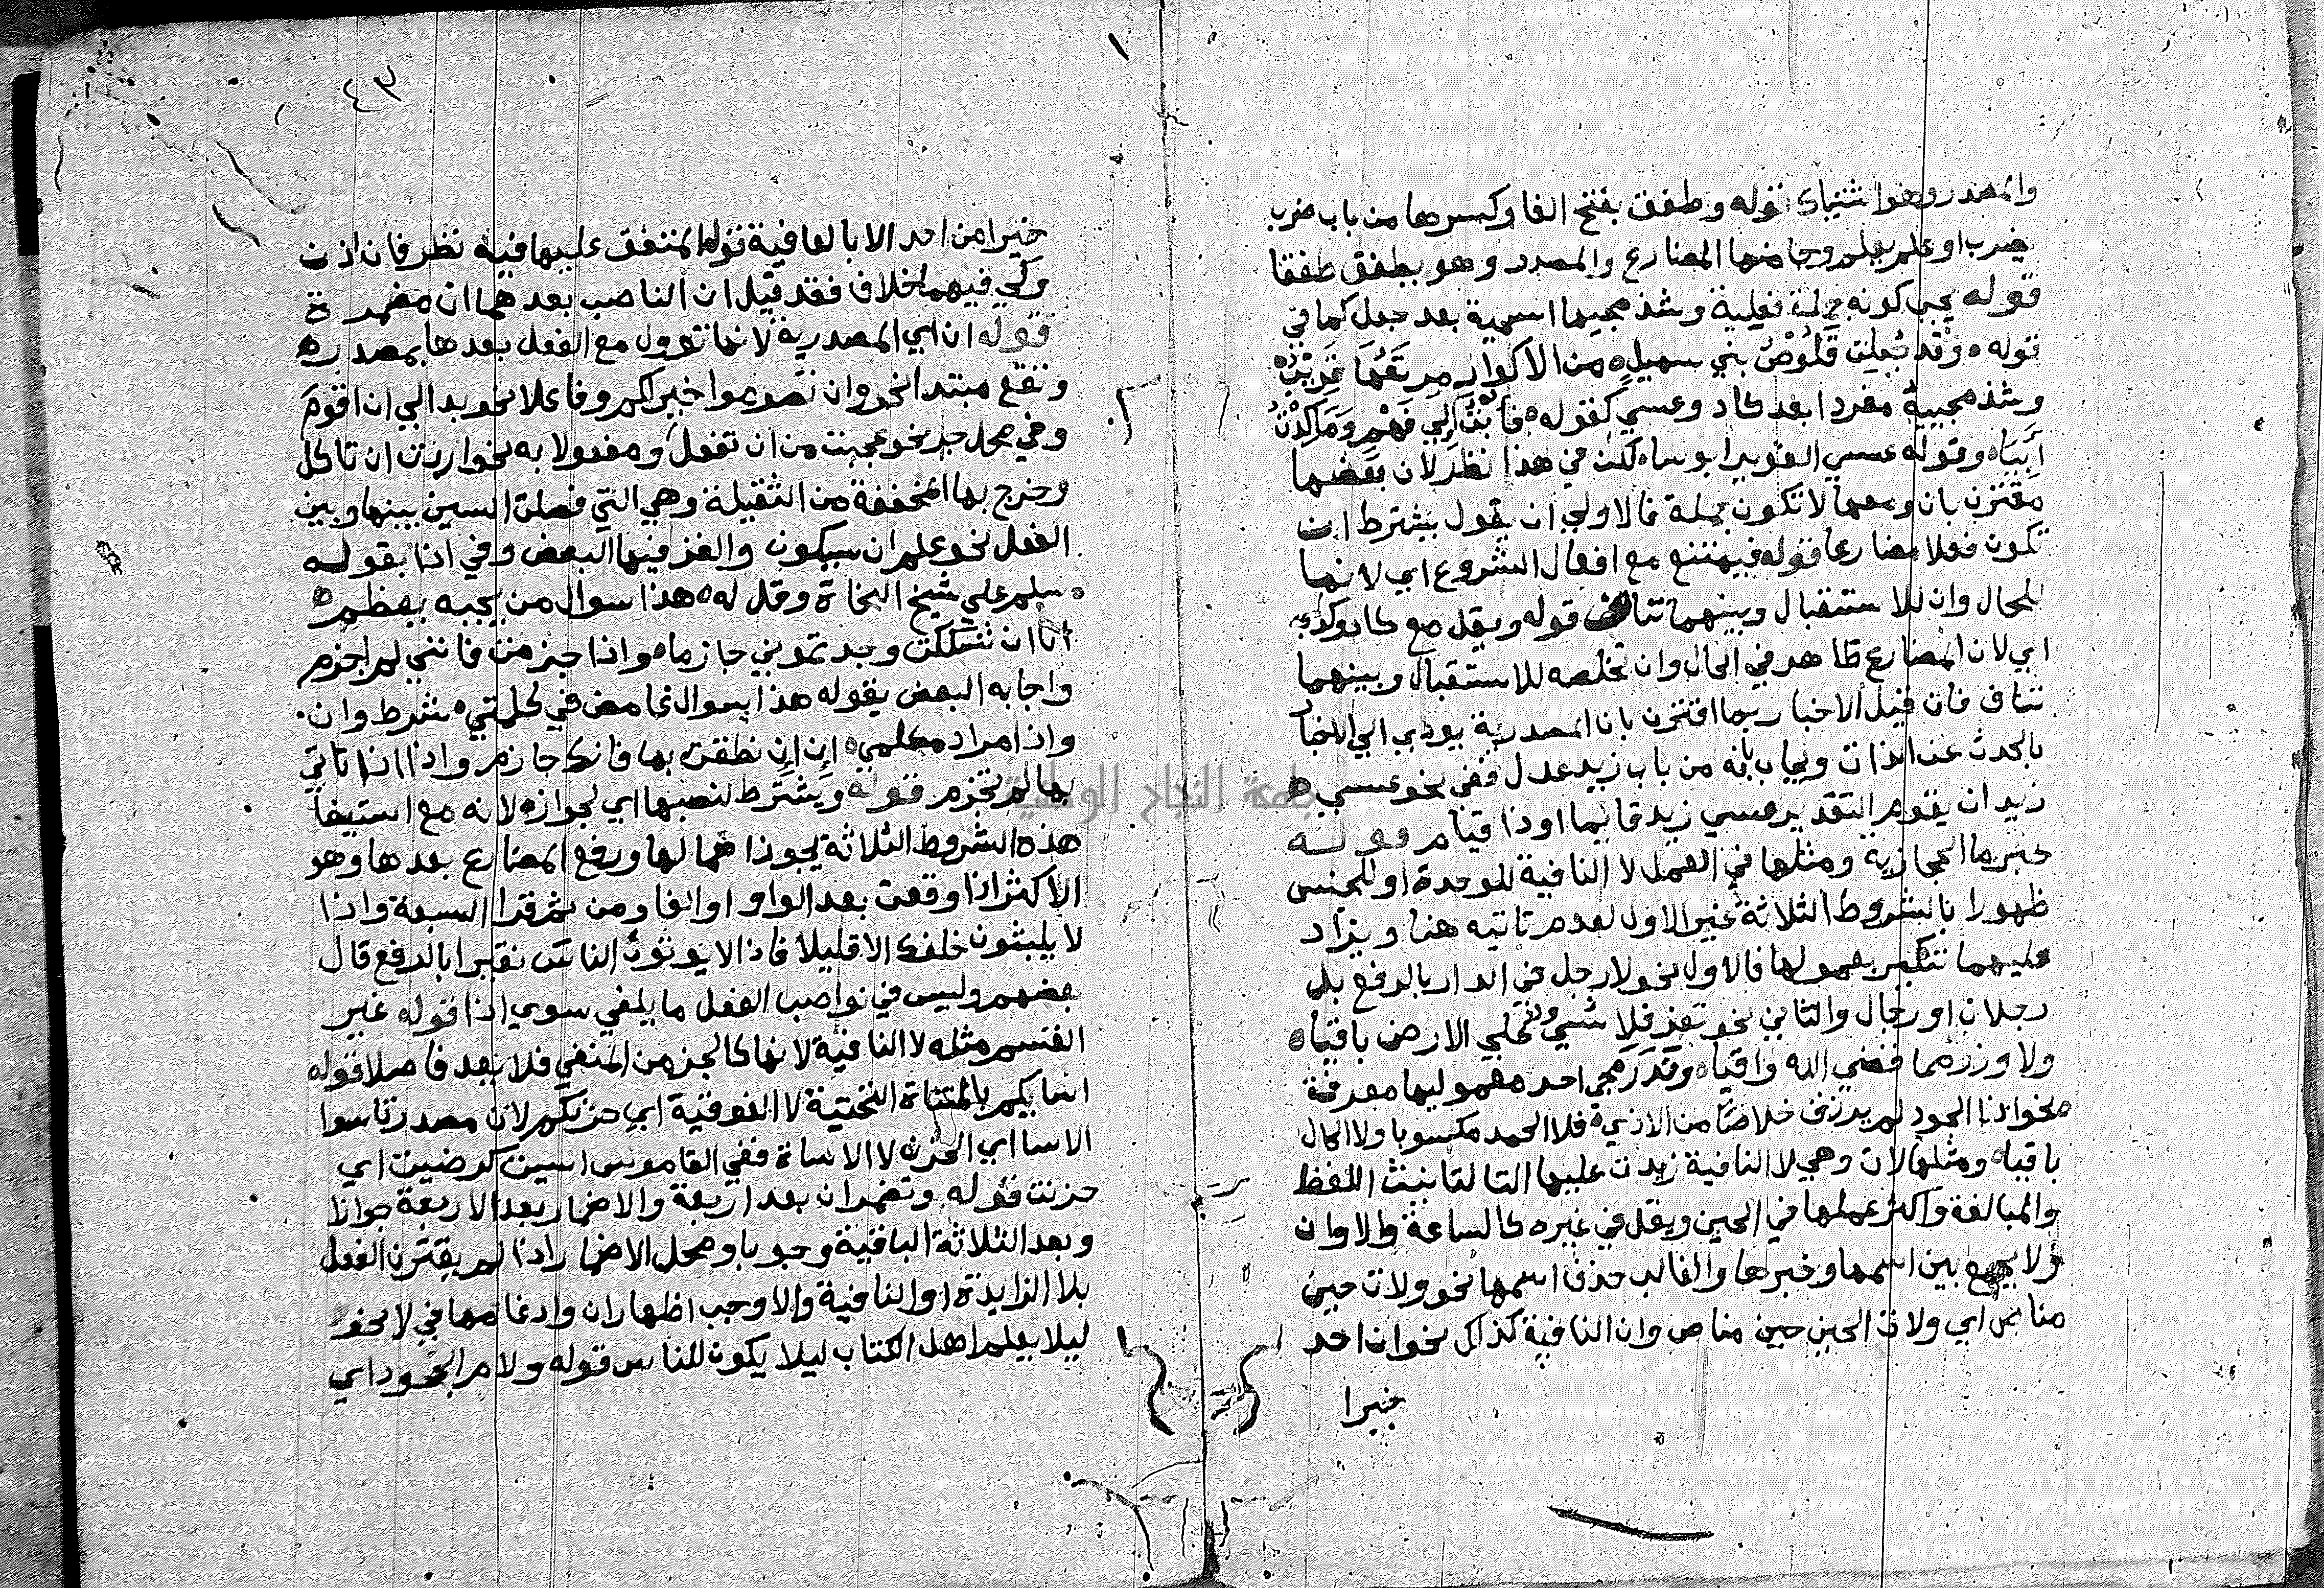 والمصدر وهو اثنياك قوله وطفق بفتح الفا وكسرها من باب ضرب
يضرب او علم يعلم وجا منها المضارع والمصدر وهو يطفق طفقا
قوله يجب كونه جملة فعلية وشذ مجيها اسمية بعد جعل كما في
قوله ه وقد جعلت قلوص بني سهيل ه من الاكوار مرتعها قريب ه
وشذ مجيية مفردا بعد كاد وعسي كقوله ه فابت الي فهم وما كدت
أيبا ه وقوله عسي الغوير ابوسا ه لكن في هذا نظر لان بعضها
مقترن بان ومعها لا تكون جملة فالاولي ان يقول يشترط ان
تكون فعلا مضارعا قوله فيمتنع مع افعال الشروع اي لانها
للحال وان للاستقبال وبينهما تناف قوله ويقل مع كاد وكرب
اي لان المضارع ظاهر في الحال وان تخلصه للاستقبال وبينهما
تناف فان قيل الاخبار بما اقترن بان المصدرية يودي الي الاخبار
بالحدث عن الذات ويجاب بانه من باب زيد عدل ففي نحو عسي
زيد ان يقوم التقدير عسي زيد قايما او ذا قيام قوله
خبر ما الحجازية ومثلها في العمل لا النافية للوحدة او للجنس
ظهورا بالشروط الثلاثة غير الاول لعدم تاتيه هنا ويزاد
عليهما تنكير معمولها فالاول نحو لا رجل في الدار بالرفع بل
رجلان او رجال والثاني نحو تعز فلا شي علي الارض باقيا ه
ولا وزر مما قضي الله واقيا ه وندر مجي احد معموليها معرفة
نحو اذا الجود لم يرزق خلاصا من الاذي ه فلا الحمد مكسوبا ولا المال
باقيا ه ومثلها لات وهي لا النافية زيدت عليها التا لتانيث اللفظ
والمبالغة واكثر عملها في الحين ويقل في غيره كالساعة والاوان
ولا يجمع بين اسمها وخبرها والغالب حذف اسمها نحو ولات حين
مناص اي ولات الحين حين مناص وان النافية كذلك نحو ان احد
خيرا
٤٣
خيرا من احد الا بالعافية قوله المتفق عليها فيه نظر فان اذن
وكي فيهما خلاف فقد قيل ان الناصب بعدهما ان مضمرة
قوله ان اي المصدرية لانها تؤول مع الفعل بعدها بمصدر ه
وتقع مبتدا نحو وان تصوموا خير لكم وفاعلا نحو بدا لي ان اقوم
وفي محل جر نحو عجبت من ان تفعل ومفعولا به نحو اردت ان تاكل
وخرج بها المخففة من الثقيلة وهي التي فصلت السين بينها وبين
الفعل نحو علم ان سيكون والغز فيها البعض وفي اذا بقوله
ه سلم علي شيخ النحاة وقل له ه هذا سوال من يجبه يعظم ه
انا ان شككت وجدتموني جازما ه واذا جزمت فانني لم اجزم
واجابه البعض بقوله هذا سوال غامض في كلمتي ه شرط وان
واذا مراد مكلمي ه ان ان نطقت بها فانك جازم واذا اذا تاتي
بها لم تجزم قوله ويشترط لنصبها اي لجوازه لانه مع استيفا
هذه الشروط الثلاثة يجوز اهمالها ورفع المضارع بعدها وهو
الاكثر اذا وقعت بعد الواو او الفا ومن ثم قرا السبعة واذا
لا يلبثون خلفك الا قليلا فاذا لا يوتون الناس نقيرا بالرفع قال
بعضهم وليس في نواصب الفعل ما يلغي سوي اذا قوله غير
القسم مثله لا النافية لانها كالجز من المنفي فلا يعد فاصلا قوله
اسايكم بالمثناة التحتية لا الفوقية اي حزنكم لان مصدر تاسوا
الاسا اي الحزن لا الاساة ففي القاموس اسيت كرضيت اي
حزنت قوله وتضمر ان بعد اربعة والاضمار بعد الاربعة جوازا
وبعد الثلاثة الباقية وجوبا ومحل الاضمار اذا لم يقترن الفعل
بلا الزايدة او النافية والا وجب اظهار ان وادغامها في لا نحو
ليلا يعلم اهل الكتاب ليلا يكون للناس قوله ولام الجحود اي
جامعة النجاح الوطنية